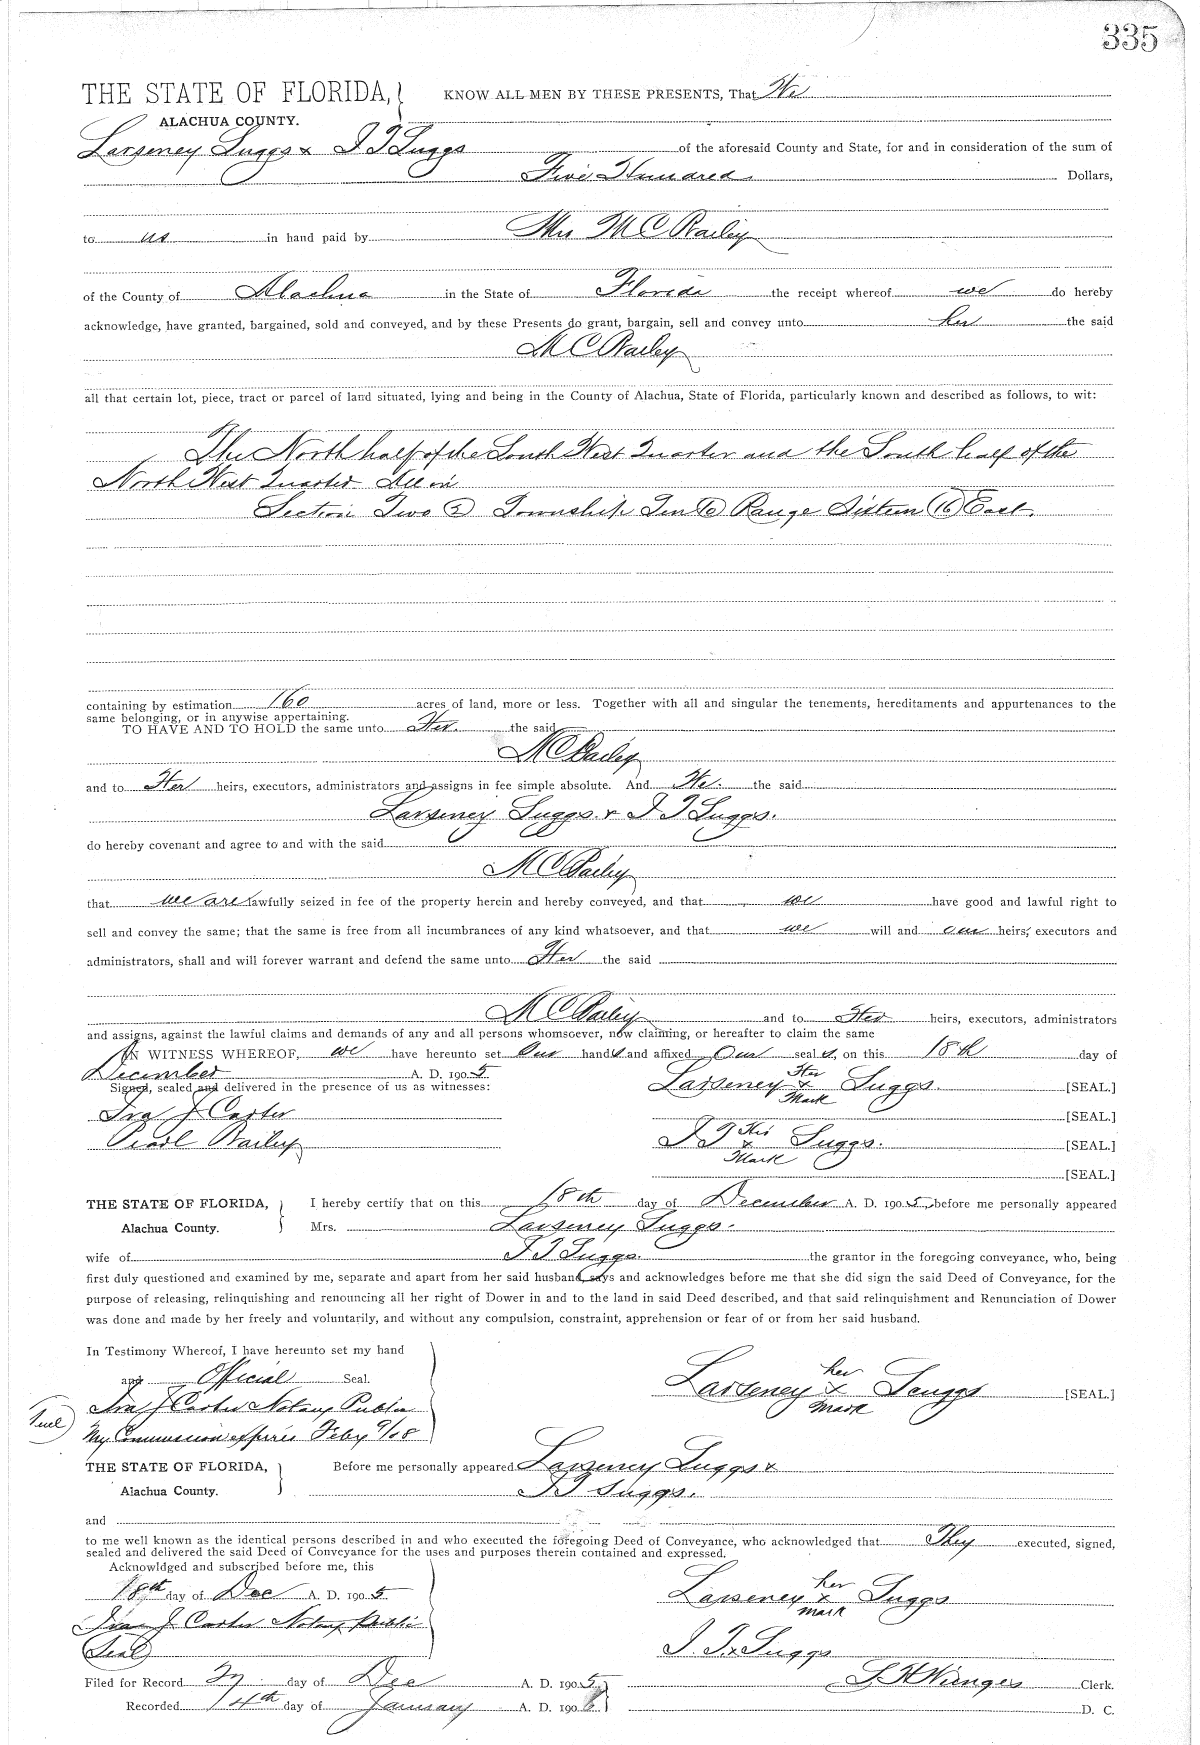 335
THE STATE OF FLORIDA, KNOW ALL MEN BY THESE PRESENTS, That We
ALACHUA COUNTY.
Larseney Suggs & J T Suggs of the aforesaid County and State, for and in consideration of the sum of
Five Hundred Dollars,
to us in hand paid by Mrs M C Bailey
of the County of Alachua in the State of Florida the receipt whereof we do hereby
acknowledge, have granted, bargained, sold and conveyed, and by these Presents do grant, bargain, sell and convey unto her the said
M C Bailey
all that certain lot, piece, tract or parcel of land situated, lying and being in the County of Alachua, State of Florida, particularly known and described as follows, to wit:
The North half of the South West Quarter and the South half of the
North West Quarter All in
Section Two (2) Township Ten (10) Range Sixteen (16) East.
containing by estimation 160 acres of land, more or less. Together with all and singular the tenements, hereditaments and appurtenances to the
same belonging, or in anywise appertaining.
TO HAVE AND TO HOLD the same unto Her the said
M C Bailey
and to Her heirs, executors, administrators and assigns in fee simple absolute. And We. the said
Larseney Suggs. & J T Suggs.
do hereby covenant and agree to and with the said
M C Bailey
that we are lawfully seized in fee of the property herein and hereby conveyed, and that we have good and lawful right to
sell and convey the same; that the same is free from all incumbrances of any kind whatsoever, and that we will and our heirs, executors and
administrators, shall and will forever warrant and defend the same unto Her the said
M C Bailey and to Her heirs, executors, administrators
and assigns, against the lawful claims and demands of any and all persons whomsoever, now claiming, or hereafter to claim the same
IN WITNESS WHEREOF, we have hereunto set Our hands and affixed Our seals, on this 18th day of
December A. D. 1905
Signed, sealed and delivered in the presence of us as witnesses: Larseney Her x Mark Suggs. [SEAL.]
Ira J Carter [SEAL.]
Pearl Bailey J T His x Mark Suggs. [SEAL.]
[SEAL.]
THE STATE OF FLORIDA, I hereby certify that on this 18th day of December A. D. 1905, before me personally appeared
Alachua County. Mrs. Larseney Suggs.
wife of J T Suggs. the grantor in the foregoing conveyance, who, being
first duly questioned and examined by me, separate and apart from her said husband, says and acknowledges before me that she did sign the said Deed of Conveyance, for the
purpose of releasing, relinquishing and renouncing all her right of Dower in and to the land in said Deed described, and that said relinquishment and Renunciation of Dower
was done and made by her freely and voluntarily, and without any compulsion, constraint, apprehension or fear of or from her said husband.
In Testimony Whereof, I have hereunto set my hand
and Official Seal. Larseney her x mark Suggs [SEAL.]
Ira J Carter Notary Public
My Commission expires Feby 9/08
THE STATE OF FLORIDA, Before me personally appeared Larseney Suggs &
Alachua County. J T Suggs.
and
to me well known as the identical persons described in and who executed the foregoing Deed of Conveyance, who acknowledged that They executed, signed,
sealed and delivered the said Deed of Conveyance for the uses and purposes therein contained and expressed.
Acknowldged and subscribed before me, this
18th day of Dec A. D. 1905 Larseney her x mark Suggs
Ira J Carter Notary Public
Seal J. T. x Suggs
Filed for Record 27 day of Dec A. D. 1905 S H Wienges Clerk.
Recorded 14th day of January A. D. 1906 D. C.